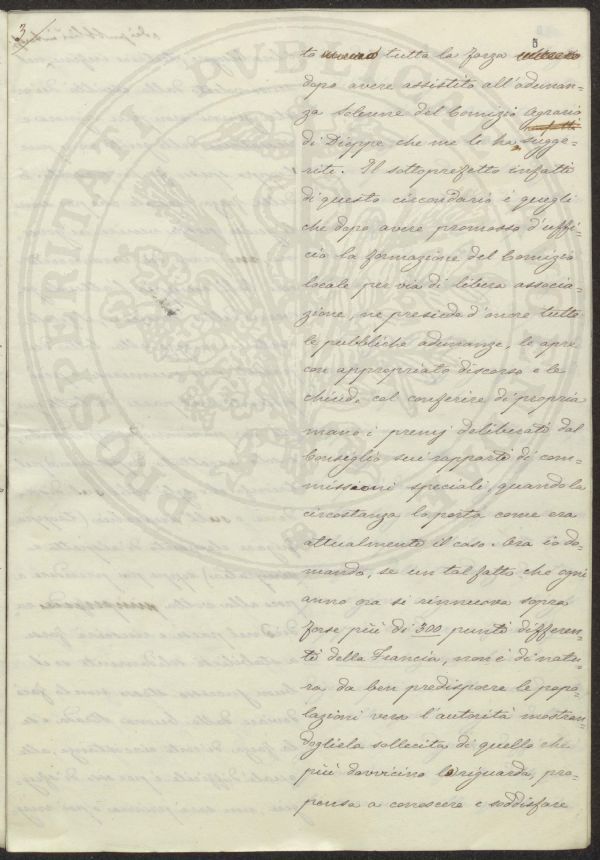 3
5
to tutta la forza
dopo avere assistito all'adunan=
za solenne del Comizio Agrario
di Dieppe che me le ha sugge=
rite. Il sottoprefetto infatti
di questo circondario è quegli
che dopo avere promosso d'uffi=
cio la formazione del Comizio
locale per via di libera associa=
zione, ne presiede d'onore tutte
le pubbliche adunanze, le apre
con appropriato discorso e le
chiude col conferire di propria
mano i premj deliberati dal
Consiglio sui rapporti di com=
missioni speciali, quando la
circostanza lo porta come era
attualmente il caso. Ora io do=
mando, se un tal fatto che ogni
anno ora si rinnuova sopra
forse più di 300 punti differen=
ti della Francia, non è di natu=
ra da ben predisporre le popo=
lazioni verso l'autorità mostran=
dogliela sollecita di quello che
più davvicino le riguarda, pro=
pensa a conoscere e soddisfare
PROSPERITATI PUBLICAE